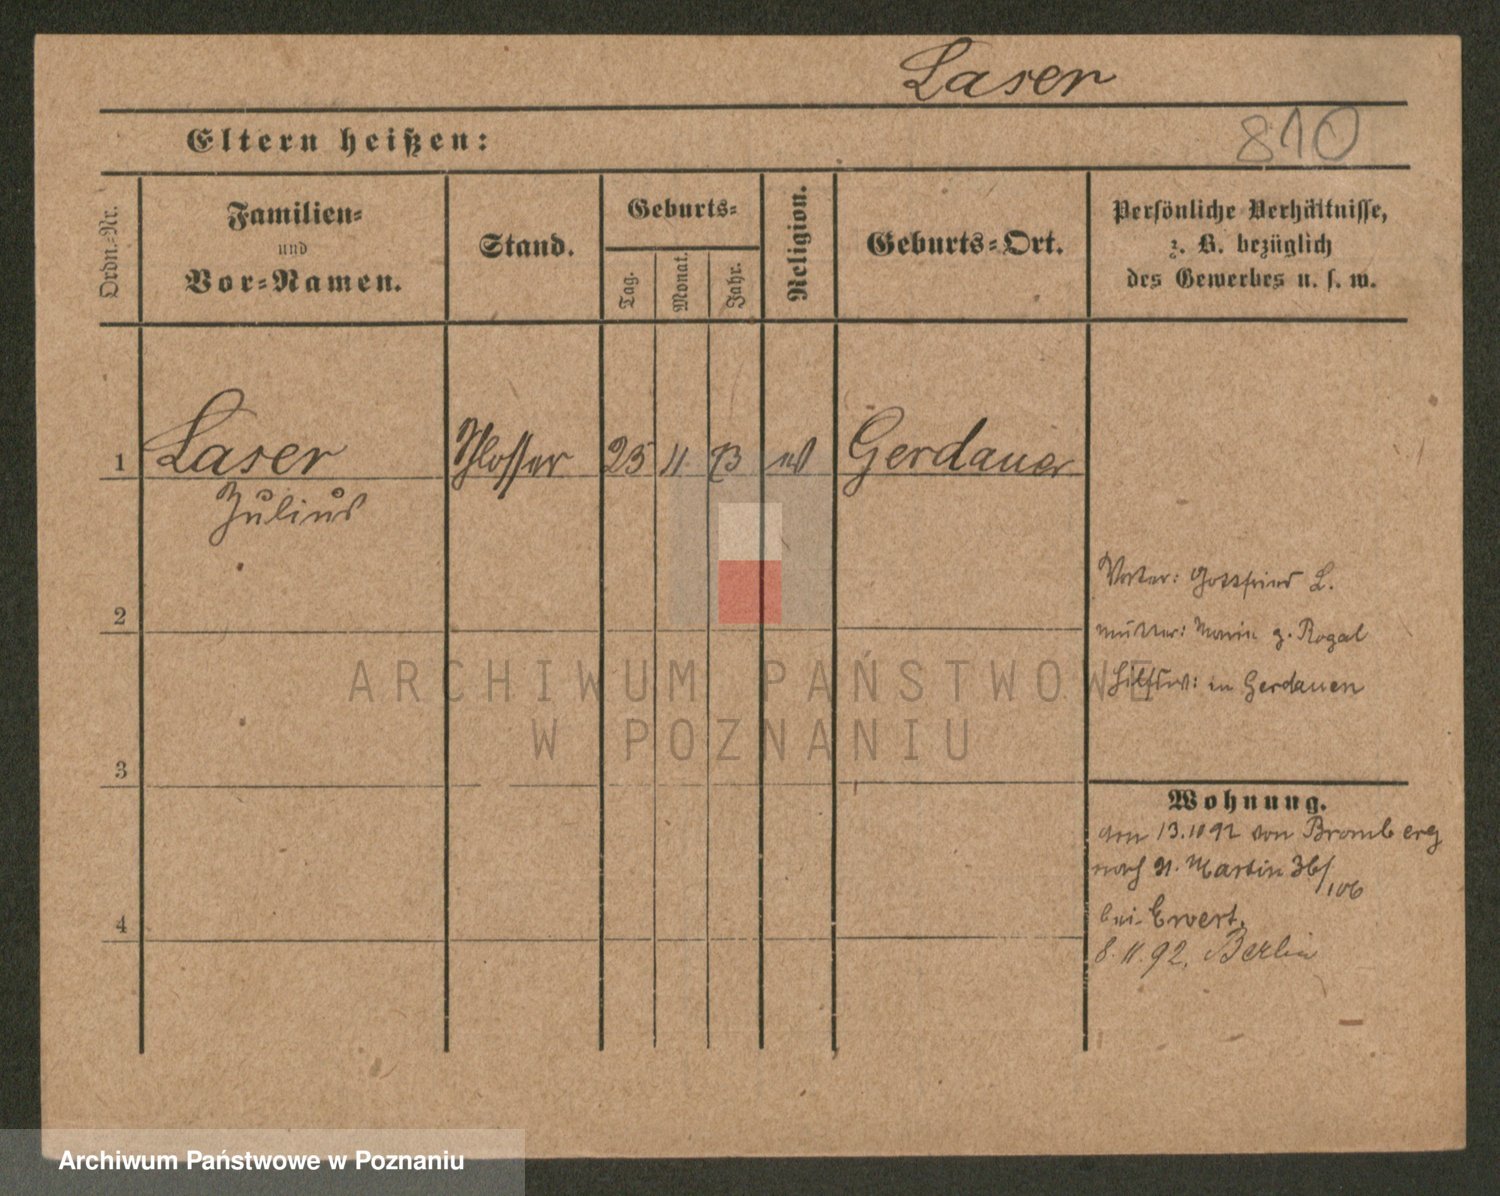 Laser
810
Eltern heißen:
Ordn.-Nr.
Familien-
und
Vor-Namen.
Stand.
Geburts-
Tag.
Monat.
Jahr.
Religion.
Geburts-Ort.
Persönliche Verhältnisse,
z. B. bezüglich
des Gewerbes u. s. w.
1 Laser Schlosser 25 11 73 ev Gerdauen
Julius
Vater: Gottfried L.
2
Mutter: Marie g. Rogal
in Gerdauen
ARCHIWUM PAŃSTWOWE
W POZNANIU
3
Wohnung.
am 13.10 92 von Bromberg
nach St. Martin 36/
106
4
bei Ewert.
8.11.92. Berlin
Archiwum Państwowe w Poznaniu